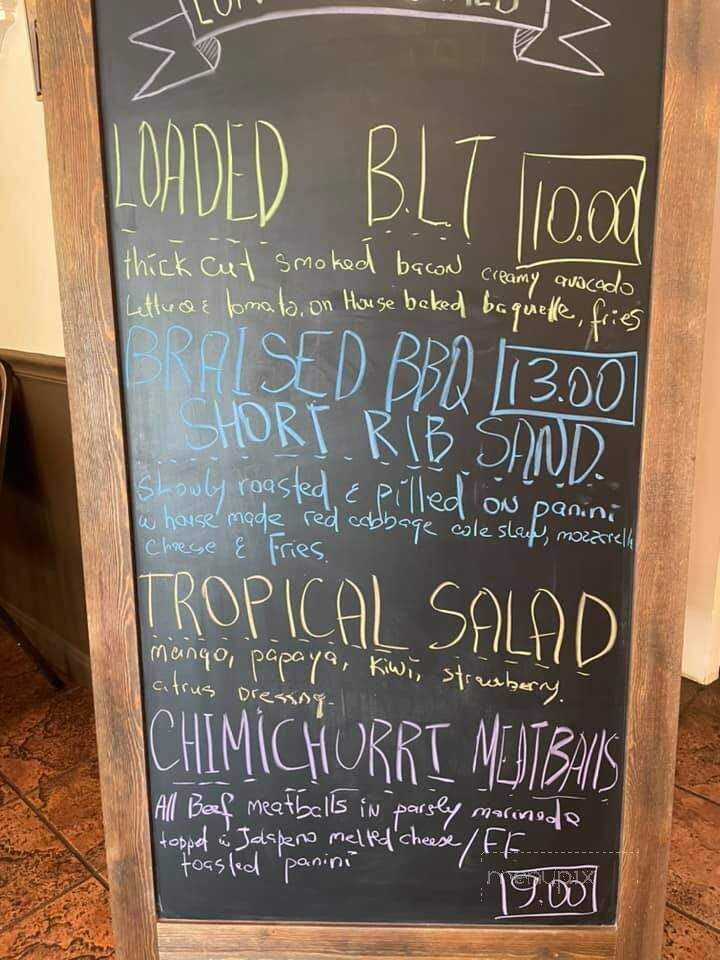 LOADED B.L.T 10.00
thick cut smoked bacon creamy avocado
Lettuce & tomato, on House baked baquette, fries
BRAISED BBQ 13.00
SHORT RIB SAND.
Slowly roasted & pilled on panini
w house made red cabbage cole slaw, mozzarella
cheese & Fries.
TROPICAL SALAD
mango, papaya, kiwi, strawberry.
citrus Dressing.
CHIMICHURRI MEATBALLS
All Beef meatballs in parsly marinade
topped w Jalapeno melted cheese/FF
toasted panini
menupix